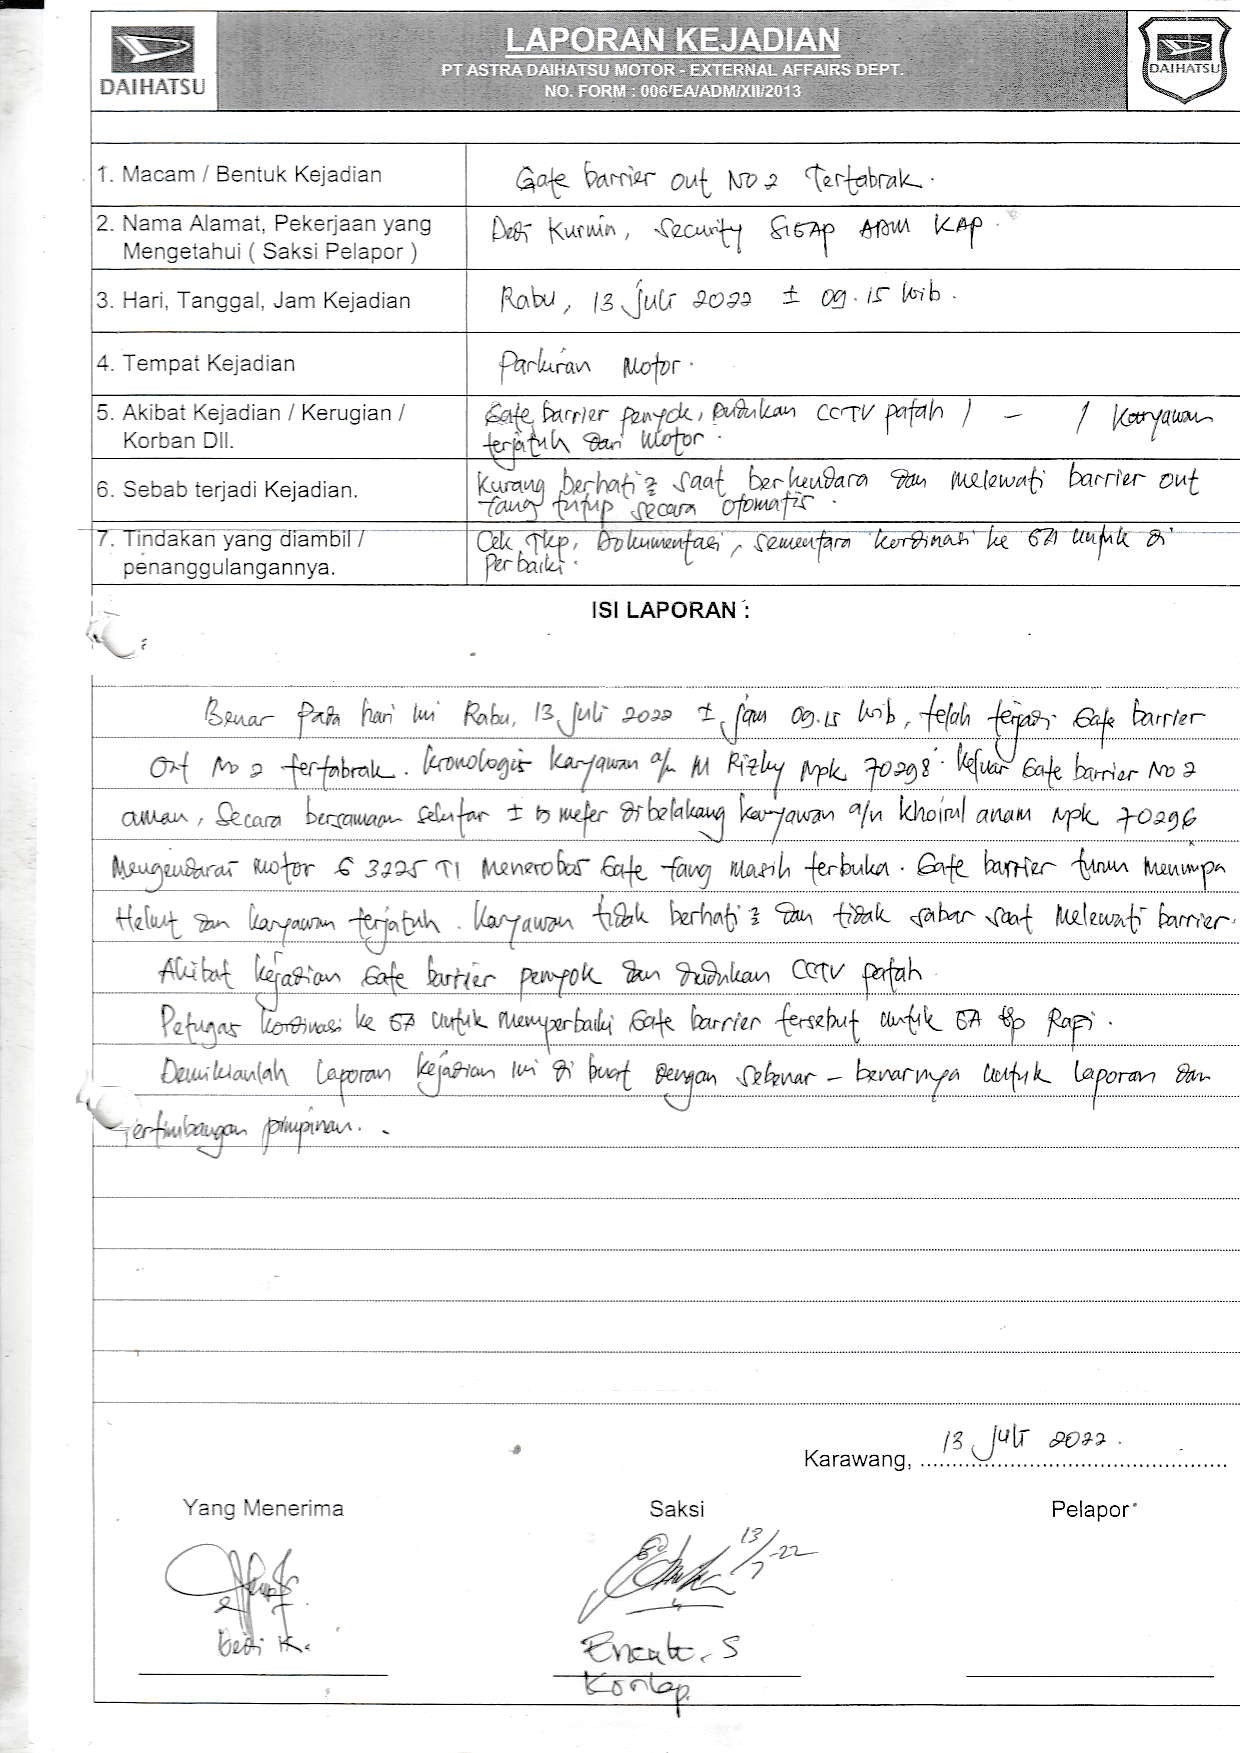 DAIHATSU
LAPORAN KEJADIAN
PT ASTRA DAIHATSU MOTOR - EXTERNAL AFFAIRS DEPT.
NO. FORM : 006/EA/ADM/XII/2013
DAIHATSU
1. Macam / Bentuk Kejadian
Gate barrier out No 2 Tertabrak.
2. Nama Alamat, Pekerjaan yang
Mengetahui ( Saksi Pelapor )
Dedi Kurnia, Security SIGAP ADM KAP.
3. Hari, Tanggal, Jam Kejadian
Rabu, 13 Juli 2022 ± 09.15 Wib.
4. Tempat Kejadian
Parkiran Motor.
5. Akibat Kejadian / Kerugian /
Korban Dll.
Gate barrier penyok, Dudukan CCTV patah / - / Karyawan
terjatuh dari Motor.
6. Sebab terjadi Kejadian.
Kurang berhati2 saat berkendara dan melewati barrier out
yang tutup secara otomatis.
7. Tindakan yang diambil /
penanggulangannya.
Cek Tkp, Dokumentasi, sementara kordinasi ke GA untuk di
perbaiki.
ISI LAPORAN :
Benar pada hari ini Rabu, 13 Juli 2022 ± jam 09.15 Wib, telah terjadi Gate barrier
Out No 2 tertabrak. Kronologis karyawan a/n M Rizky Npk 70298. Keluar Gate barrier No 2
aman, Secara bersamaan sekitar ± meter dibelakang karyawan a/n Khoirul anam Npk 70296
Mengendarai motor 3225 TI Menerobos Gate yang masih terbuka. Gate barrier turun menimpa
Helm dan karyawan terjatuh. Karyawan tidak berhati2 dan tidak sabar saat melewati barrier.
Akibat kejadian Gate barrier penyok dan dudukan CCTV patah
Petugas kordinasi ke GA untuk memperbaiki Gate barrier tersebut untuk GA Rapi.
Demikianlah laporan kejadian ini di buat dengan sebenar - benarnya untuk laporan dan
Pertimbangan pimpinan.
Karawang, 13 Juli 2022.
Yang Menerima
Saksi
Pelapor
13/7-22
Dedi K.
S
Korlap.